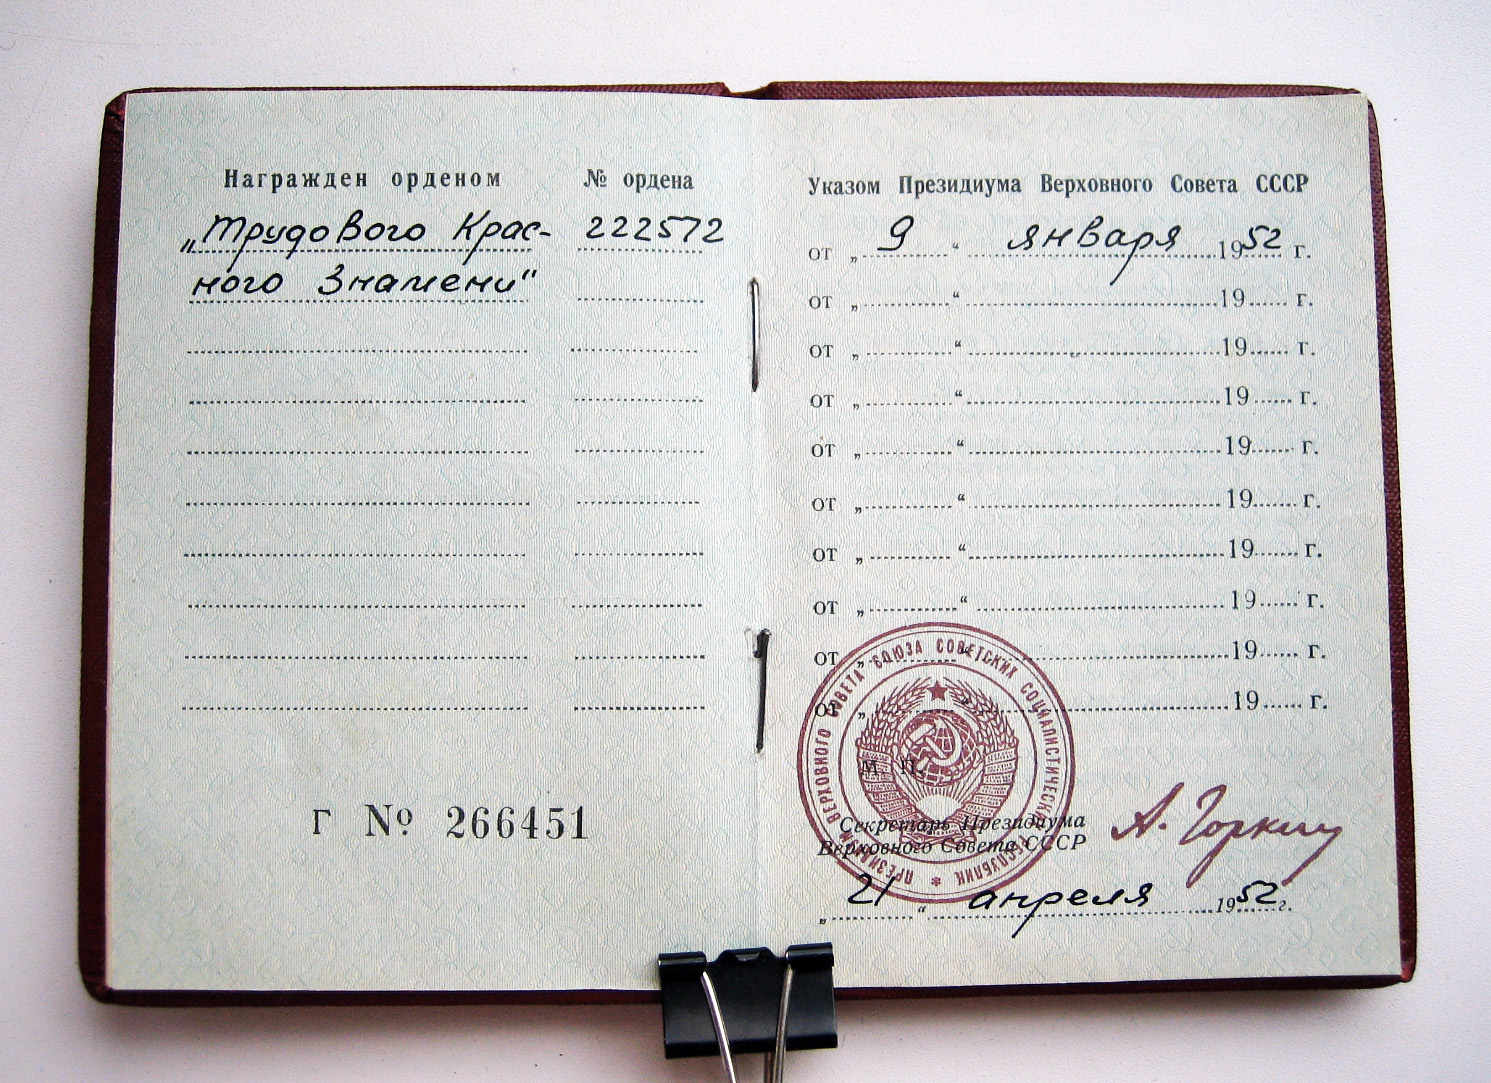 Награжден орденом
№ ордена
„Трудового Крас-
222572
ного Знамени“
Г № 266451
Указом Президиума Верховного Совета СССР
от „ 9 “ января 1952 г.
от „ “ 19 г.
от „ “ 19 г.
от „ “ 19 г.
от „ “ 19 г.
от „ “ 19 г.
от „ “ 19 г.
от „ “ 19 г.
от „ “ 19 г.
от „ “ 19 г.
ПРЕЗИДИУМ ВЕРХОВНОГО СОВЕТА СОЮЗА СОВЕТСКИХ СОЦИАЛИСТИЧЕСКИХ РЕСПУБЛИК *
М. П.
Секретарь Президиума
Верховного Совета СССР
А. Горкин
„ 21 “ апреля 1952 г.